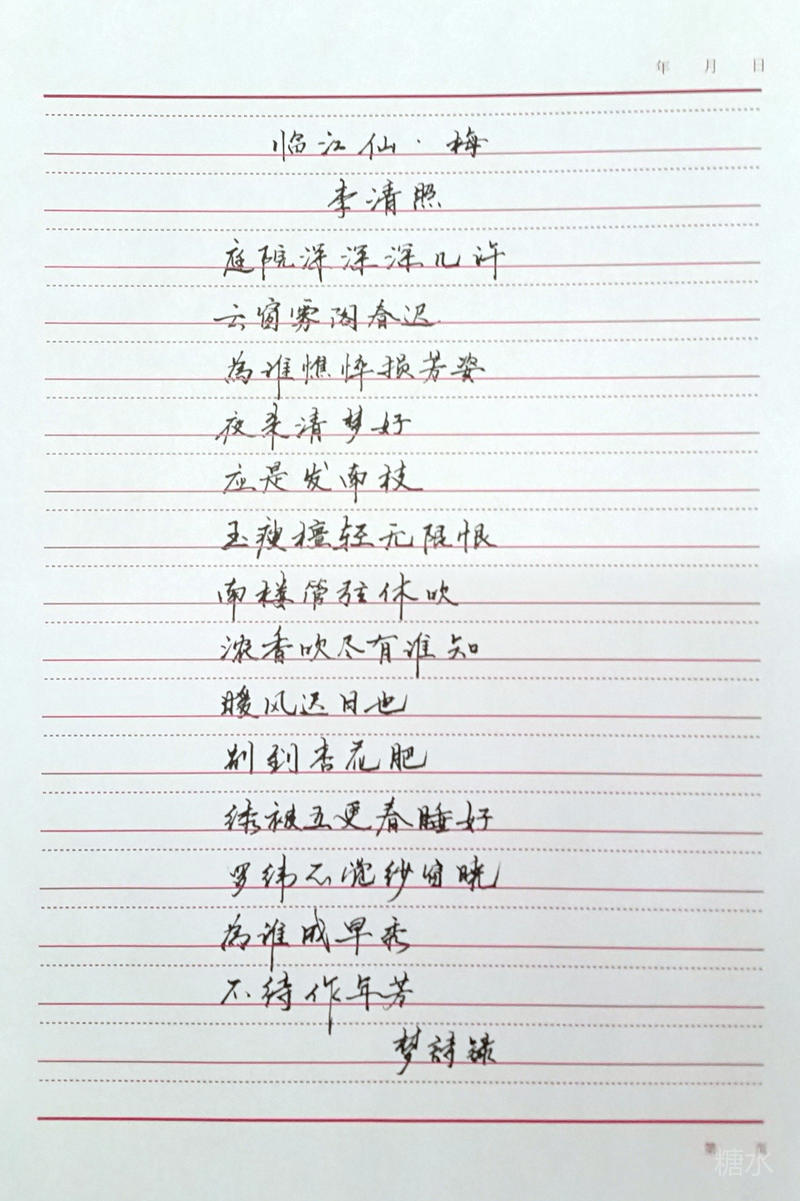 年 月 日
临江仙·梅
李清照
庭院深深深几许
云窗雾阁春迟
為谁憔悴损芳姿
夜来清梦好
应是发南枝
玉瘦檀轻无限恨
南楼管弦休吹
浓香吹尽有谁知
暖风迟日也
别到杏花肥
绣被五更春睡好
罗纬不觉纱窗晓
為谁成早秀
不待作年芳
梦詩录
第 页
糖水